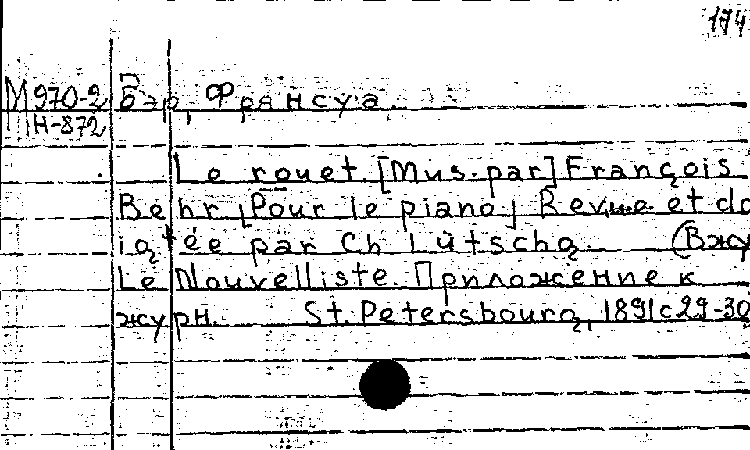 174
М970-2 Бэр, Франсуа.
Н-872
Le rouet [Mus. par] François
Behr [Pour le piano] Revue et do
igtée par Ch Lütschg. (Вжу
Le Nouvelliste. Приложение к
журн. St. Petersbourg, 1891 с 29-30